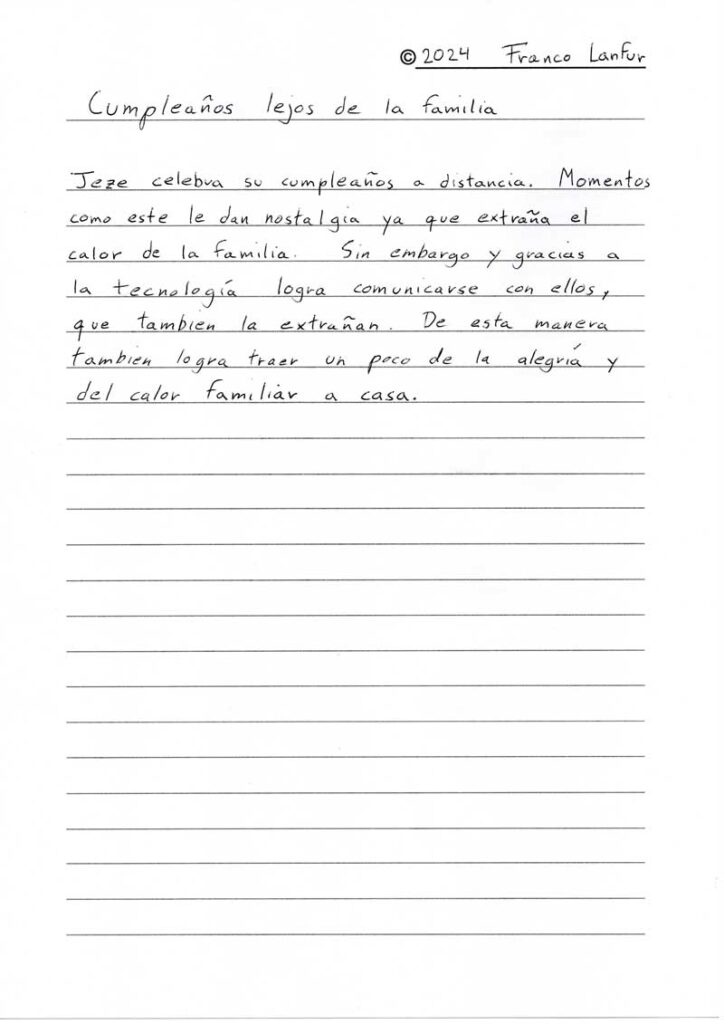 © 2024 Franco Lanfur
Cumpleaños lejos de la familia
Jeze celebra su cumpleaños a distancia. Momentos
como este le dan nostalgia ya que extraña el
calor de la familia. Sin embargo y gracias a
la tecnología logra comunicarse con ellos,
que tambien la extrañan. De esta manera
tambien logra traer un poco de la alegría y
del calor familiar a casa.